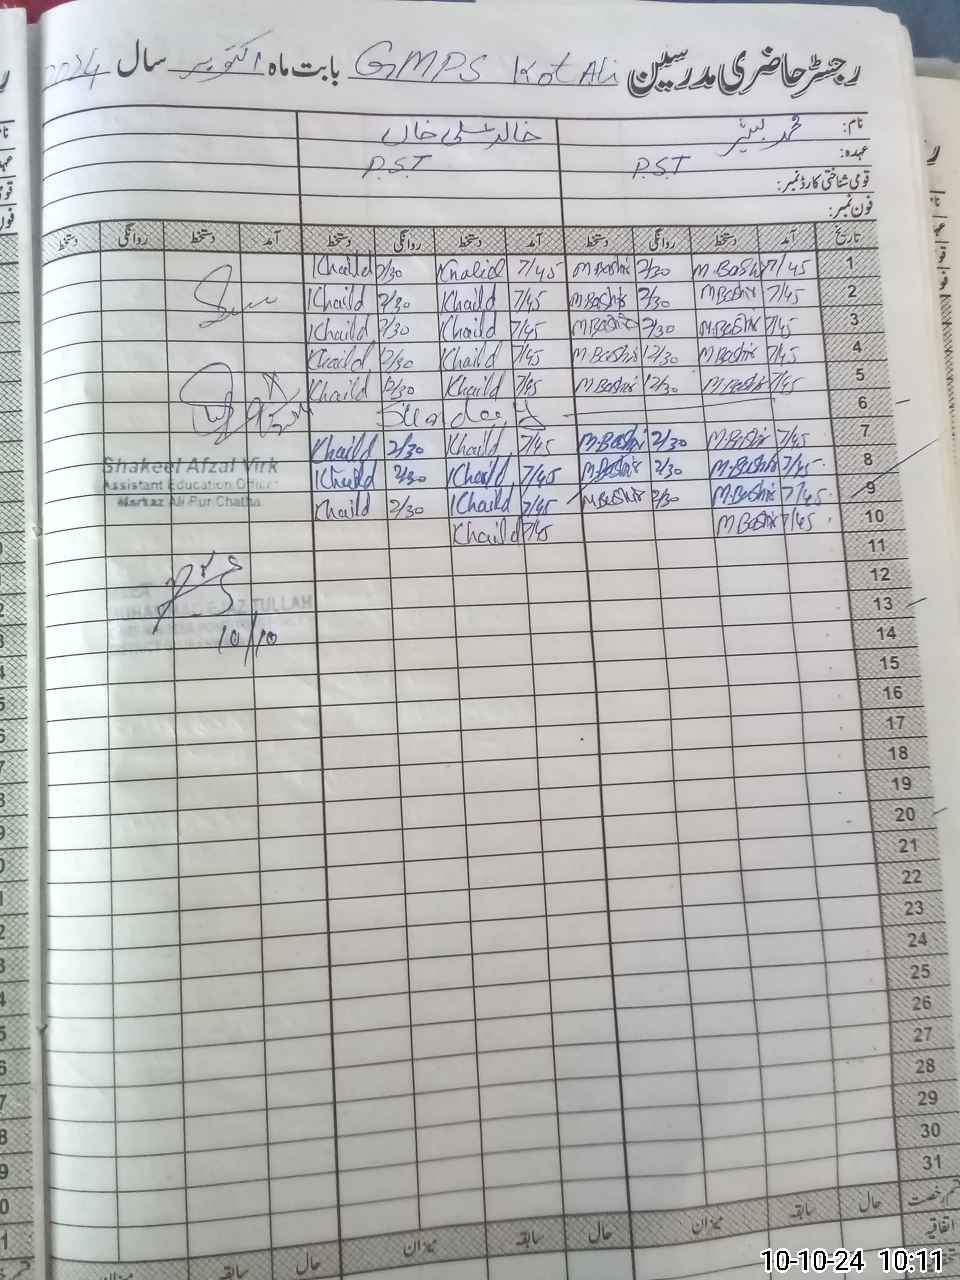 رجسٹر حاضری مدرسین GMPS Kot Ali بابت ماہ اکتوبر سال 2024
نام: محمد بشیر خالد علی خاں
عہدہ: P.S.T P.S.T
قومی شناختی کارڈ نمبر:
فون نمبر:
تاریخ آمد دستخط روانگی دستخط آمد دستخط روانگی دستخط آمد دستخط روانگی دستخط
1 7/45 M Bashir 2/30 M Bashir 7/45 Khalid 2/30 Khaild
2 7/45 M Bashir 2/30 M Bashir 7/45 Khaild 2/30 Khaild
3 7/45 M Bashir 2/30 M Bashir 7/45 Khaild 2/30 Khaild
4 7/45 M Bashir 12/30 M Bashir 7/45 Khaild 12/30 Khaild
5 7/45 M Bashir 12/30 M Bashir 7/45 Khaild 12/30 Khaild
6 Sunday
7 7/45 M Bashir 2/30 M Bashir 7/45 Khaild 2/30 Khaild
8 7/45 M Bashir 2/30 M Bashir 7/45 Khaild 2/30 Khaild
9 7/45 M Bashir 2/30 M Bashir 7/45 Khaild 2/30 Khaild
10 7/45 M Bashir 7/45 Khaild
Shakeel Afzal Virk
Assistant Education Officer
Markaz Ali Pur Chatha
11
12
13
10/10
14
15
16
17
18
19
20
21
22
23
24
25
26
27
28
29
30
31
قسم رخصت حال سابقہ میزان حال سابقہ میزان حال سابقہ میزان
اتفاقیہ
10-10-24 10:11